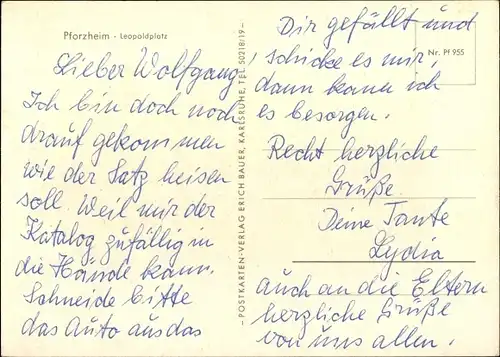 Pforzheim - Leopoldplatz
Lieber Wolfgang!
Ich bin doch noch
drauf gekommen
wie der Satz heisen
soll. Weil mir der
Katalog zufällig in
die Hände kam.
Schneide bitte
das Auto aus das
- POSTKARTEN-VERLAG ERICH BAUER, KARLSRUHE, TEL. 50218/19 -
Nr. Pf 955
Dir gefällt und
schicke es mir,
dann kann ich
es besorgen.
Recht herzliche
Grüße.
Deine Tante
Lydia
auch an die Eltern
herzliche Grüße
von uns allen.